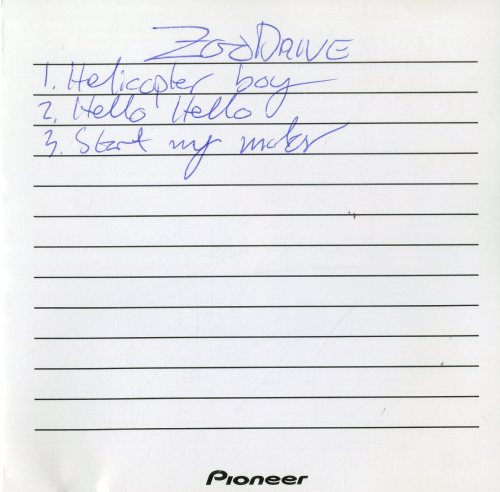 ZOODRIVE
1. Helicopter boy
2. Hello Hello
3. Start my motor
Pioneer